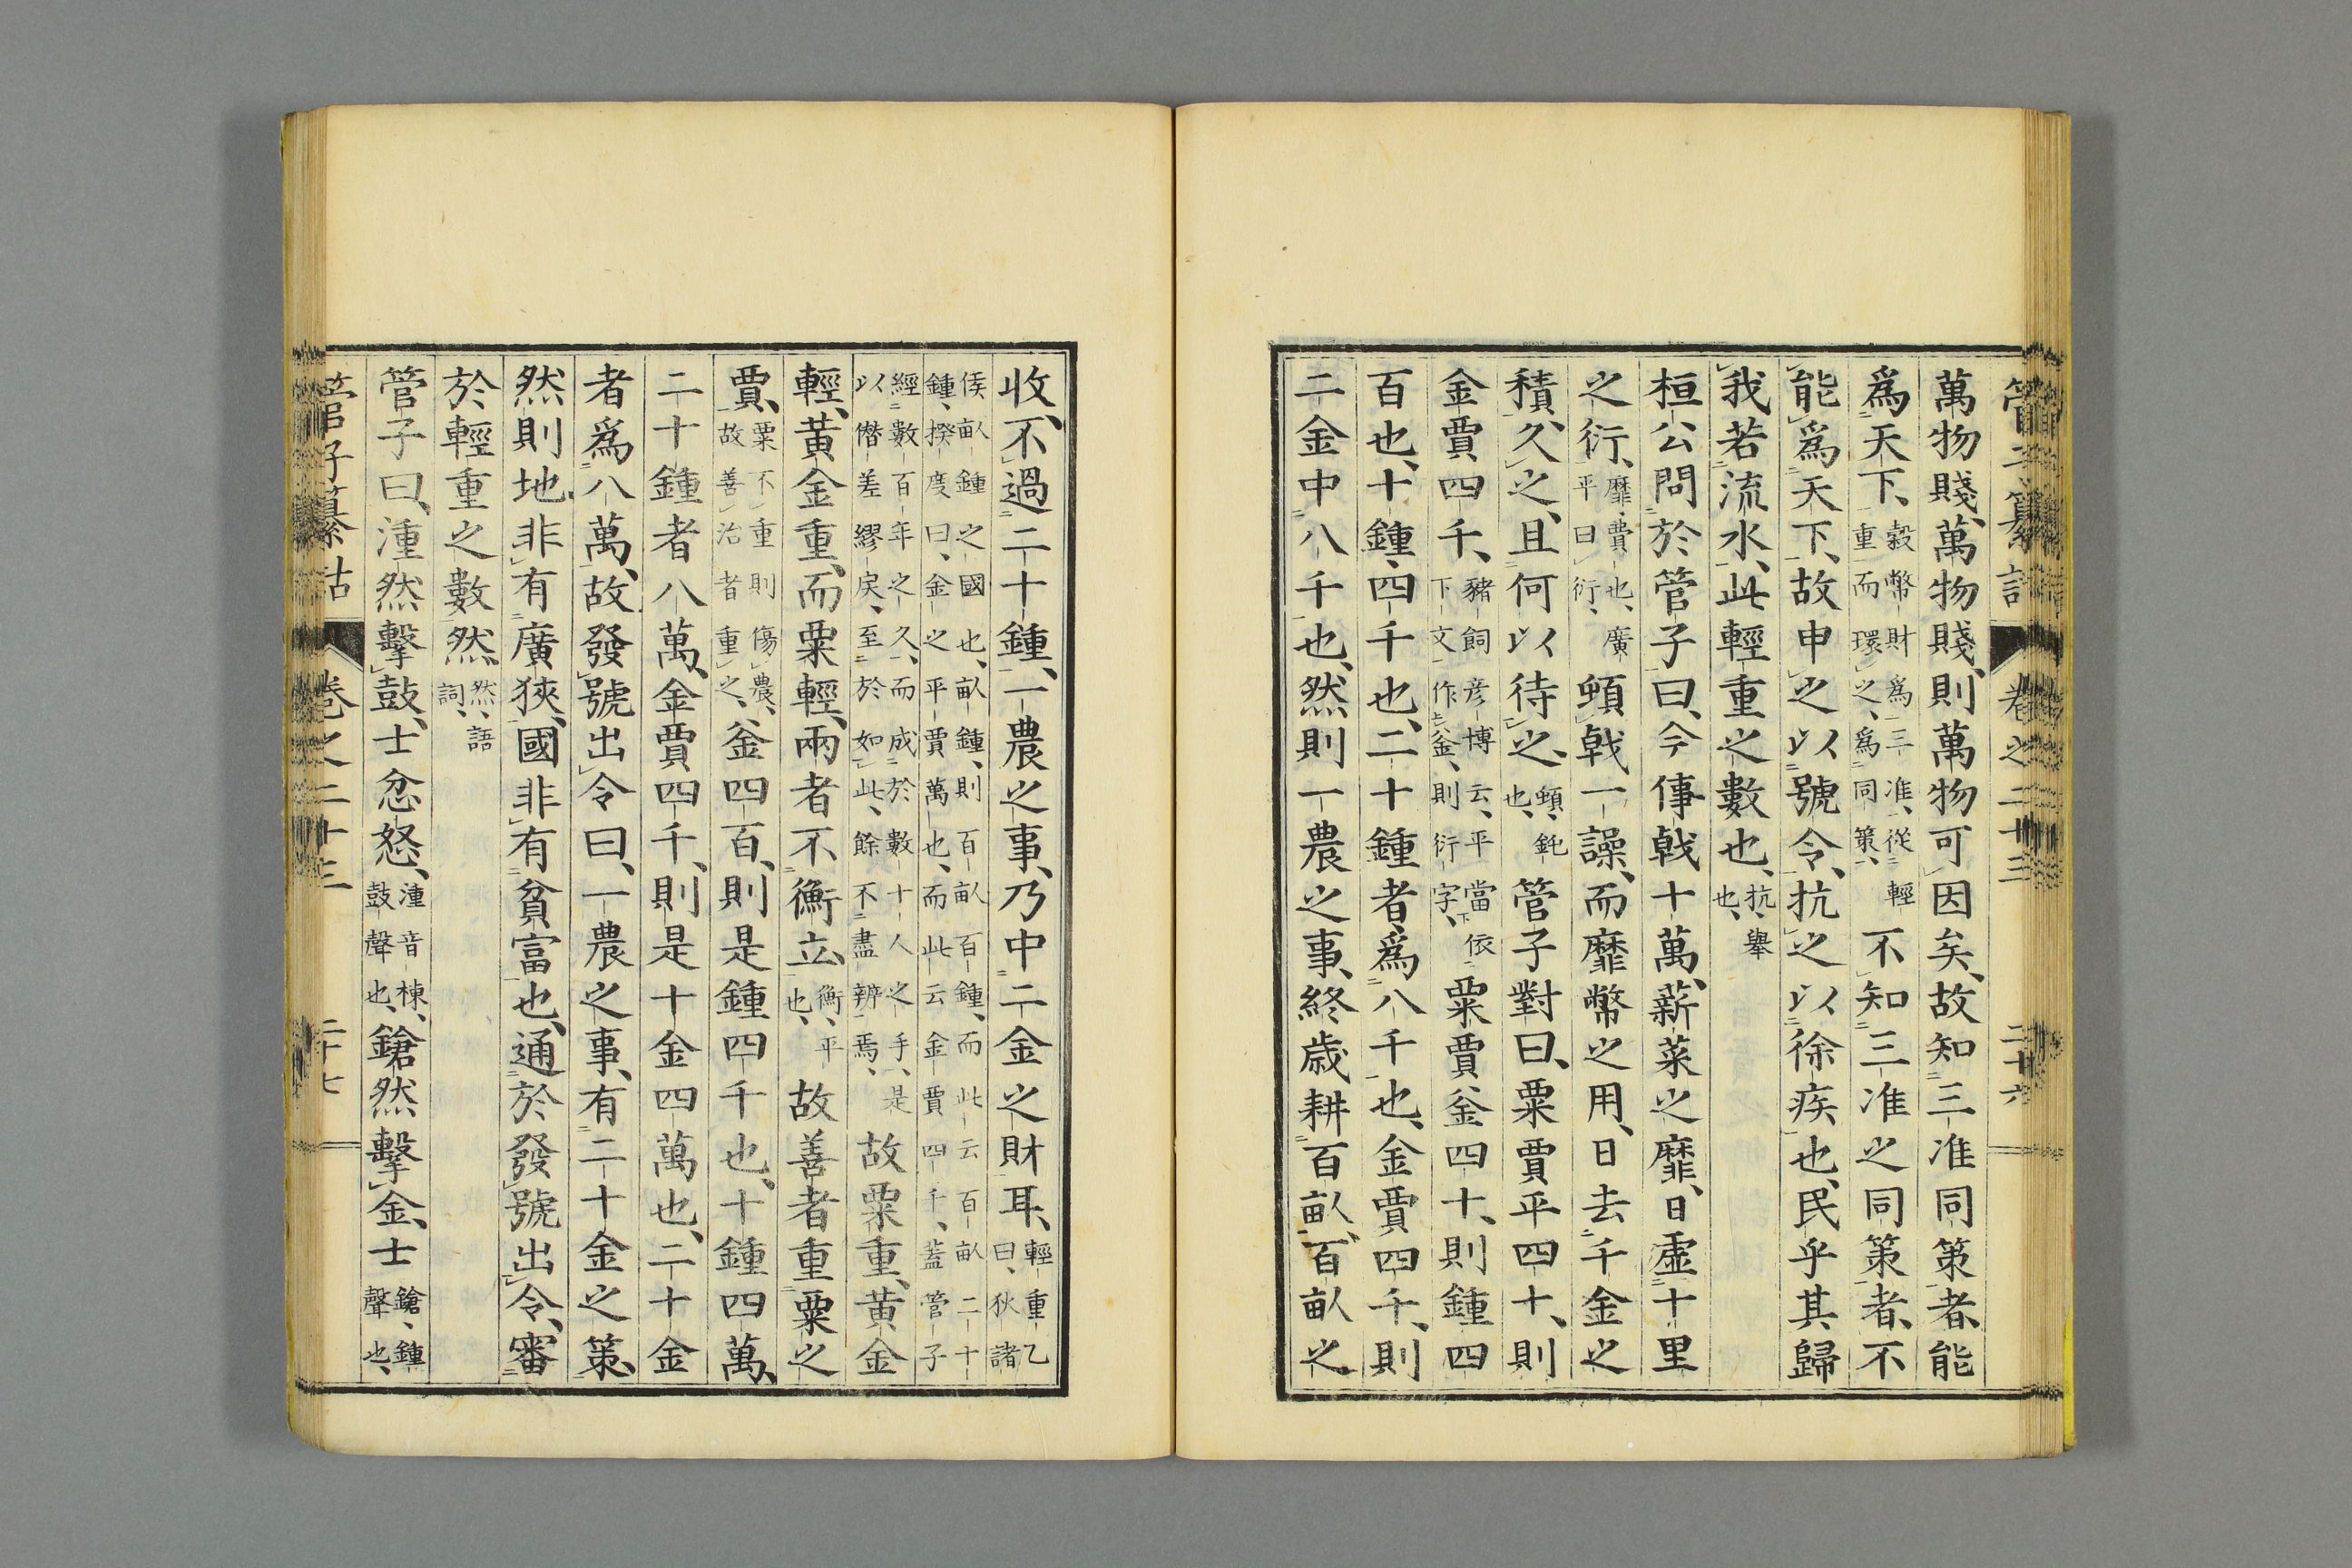 管子纂詁 卷之二十三 二十六
萬物賤、萬物賤、則萬物可因矣、故知三准同策者、能
爲天下、穀幣財爲三准、從輕重而環之、爲同策、不知三准之同策者、不
能爲天下、故申之以號令、抗之以徐疾也、民乎其歸
我若流水、此輕重之數也、抗、舉也、
桓公問於管子曰、今傳戟十萬、薪菜之靡、日虛十里
之衍、靡、費也、廣平曰衍、頓戟一譟、而靡幣之用、日去千金之
積、久之、且何以待之、頓、鈍也、管子對曰、粟賈平四十、則
金賈四千、豬飼彦博云、平當依下文作釜、則下衍字、粟賈釜四十、則鍾四
百也、十鍾四千也、二十鍾者、爲八千也、金賈四千、則
二金中八千也、然則一農之事、終歲耕百畝、百畝之
收、不過二十鍾、一農之事、乃中二金之財耳、輕重乙曰、狄諸
侯畝鍾之國也、畝鍾、則百畝百鍾、而此云百畝二十
鍾、揆度曰、金之平賈萬也、而此云金賈四千、蓋管子
經數百年之久、而成於數十人之手、是
以僭差繆戾、至於如此、餘不盡辨焉、故粟重、黃金
輕、黃金重、而粟輕、兩者不衡立、衡、平也、故善者重粟之
賈、粟不重則傷農、故善治者重之、釜四百、則是鍾四千也、十鍾四萬、
二十鍾者八萬、金賈四千、則是十金四萬也、二十金
者爲八萬、故發號出令曰、一農之事、有二十金之策、
然則地非有廣狹、國非有貧富也、通於發號出令、審
於輕重之數然、然、語詞、
管子曰、湩然擊鼓、士忿怒、湩音棟、鼓聲也、鎗然擊金、士鎗、鍾聲也、
管子纂詁 卷之二十三 二十七